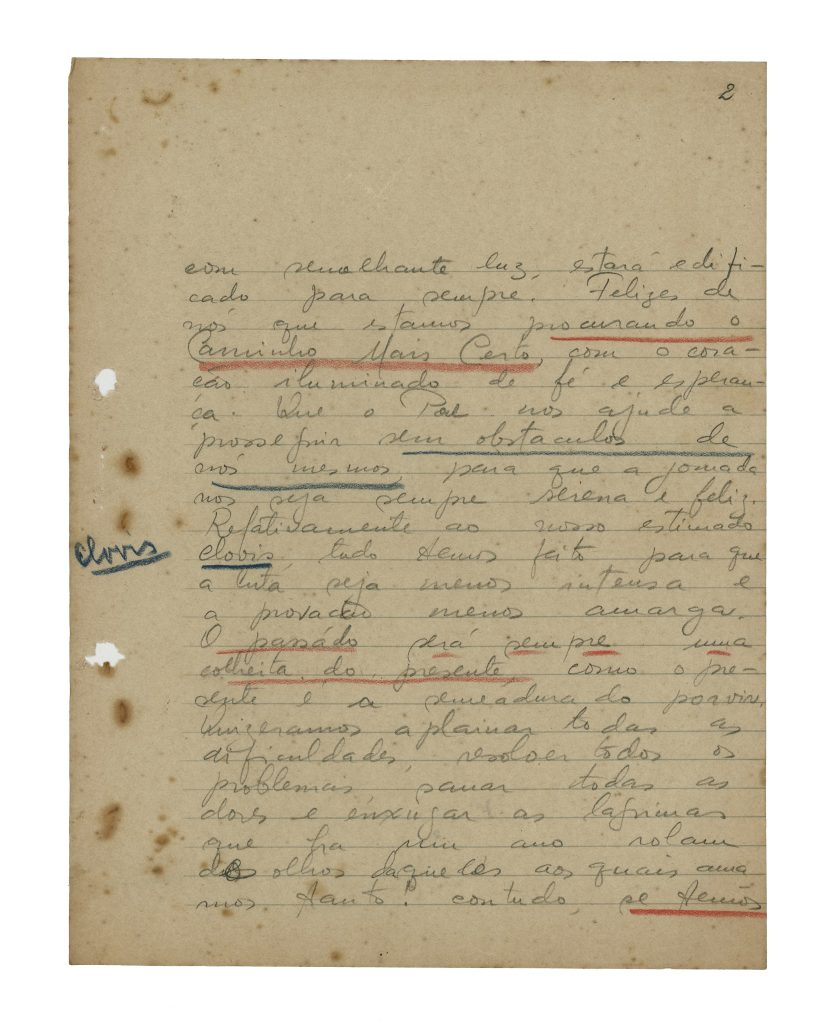 2
com semelhante luz, estará edifi-
cado para sempre. Felizes de
nós que estamos procurando o
Caminho Mais Certo, com o cora-
ção iluminado de fé e esperan-
ça. Que o Pae nos ajude a
prosseguir sem obstaculos de
nós mesmos, para que a jornada
nos seja sempre serena e feliz.
Relativamente ao nosso estimado
Clovis, tudo temos feito para que
Clovis
a luta seja menos intensa e
a provação menos amarga.
O passado será sempre uma
colheita do presente, como o pre-
sente é a semeadura do porvir.
Quizeramos aplainar todas as
dificuldades, resolver todos os
problemas, sanar todas as
dores e enxugar as lagrimas
que ha um ano rolam
dos olhos daqueles aos quais ama
mos tanto! contudo, se temos